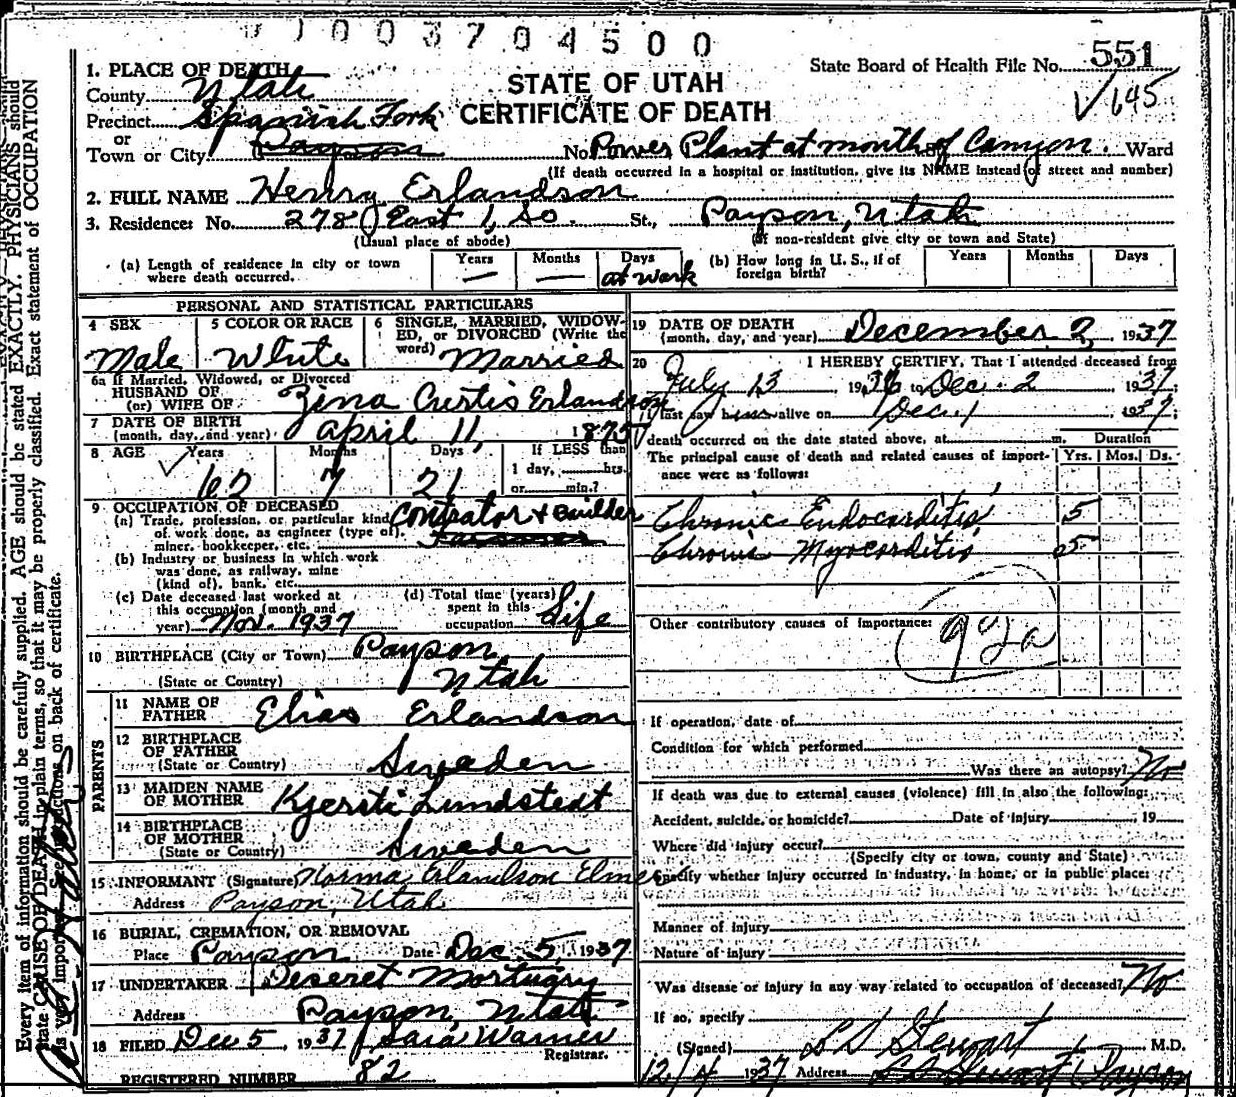 0 0 3 7 0 4 5 0 0
551
State Board of Health File No.
√ 145
STATE OF UTAH
CERTIFICATE OF DEATH
1. PLACE OF DEATH
County Utah
Precinct Spanish Fork
or
Town or City Payson No. Power Plant at mouth of Canyon. Ward
(If death occurred in a hospital or institution, give its NAME instead of street and number)
2. FULL NAME Henry Erlandson
3. Residence: No. 278 East 1, So. St., Payson, Utah
(Usual place of abode) (If non-resident give city or town and State)
(a) Length of residence in city or town where death occurred. Years — Months — Days at work
(b) How long in U. S., if of foreign birth? Years Months Days
PERSONAL AND STATISTICAL PARTICULARS
4 SEX Male
5 COLOR OR RACE White
6 SINGLE, MARRIED, WIDOWED, or DIVORCED (Write the word) Married
6a If Married, Widowed, or Divorced
HUSBAND OF
(or) WIFE OF Zina Curtis Erlandson
7 DATE OF BIRTH
(month, day, and year) April 11, 1875
8 AGE Years 62 Months 7 Days 21 If LESS than
1 day, hrs.
or min.?
9 OCCUPATION OF DECEASED
(a) Trade, profession, or particular kind of work done, as engineer (type of), miner, bookkeeper, etc. Contrator + Builder
(b) Industry or business in which work was done, as railway, mine (kind of), bank, etc.
(c) Date deceased last worked at this occupation (month and year) Nov. 1937
(d) Total time (years) spent in this occupation Life
10 BIRTHPLACE (City or Town) Payson
(State or Country) Utah
PARENTS
11 NAME OF FATHER Elias Erlandson
12 BIRTHPLACE OF FATHER
(State or Country) Sweden
13 MAIDEN NAME OF MOTHER Kjersti Lundstedt
14 BIRTHPLACE OF MOTHER
(State or Country) Sweden
15 INFORMANT (Signature) Norma Erlandson Elmer
Address Payson, Utah
16 BURIAL, CREMATION, OR REMOVAL
Place Payson Date Dec. 5, 1937
17 UNDERTAKER Deseret Mortuary
Address Payson, Utah
18 FILED Dec 5, 1937 Sara Warner
Registrar.
REGISTERED NUMBER 82
19 DATE OF DEATH
(month, day, and year) December 2, 1937
20 I HEREBY CERTIFY, That I attended deceased from
July 13 1936 to Dec. 2, 1937;
I last saw him alive on Dec. 1, 1937;
death occurred on the date stated above, at m. Duration
The principal cause of death and related causes of importance were as follows: Yrs. Mos. Ds.
Chronic Endocarditis 5
Chronic Myocarditis 5
Other contributory causes of importance:
92a
If operation, date of
Condition for which performed
Was there an autopsy? No
If death was due to external causes (violence) fill in also the following:
Accident, suicide, or homicide? Date of injury , 19
Where did injury occur?
(Specify city or town, county and State)
Specify whether injury occurred in industry, in home, or in public place:
Manner of injury
Nature of injury
Was disease or injury in any way related to occupation of deceased? No
If so, specify
(Signed) L D Stewart M.D.
12/4 1937 Address L D Stewart Payson
Every item of information should be carefully supplied. AGE should be stated EXACTLY. PHYSICIANS should
state CAUSE OF DEATH in plain terms, so that it may be properly classified. Exact statement of OCCUPATION
is very important. See instructions on back of certificate.